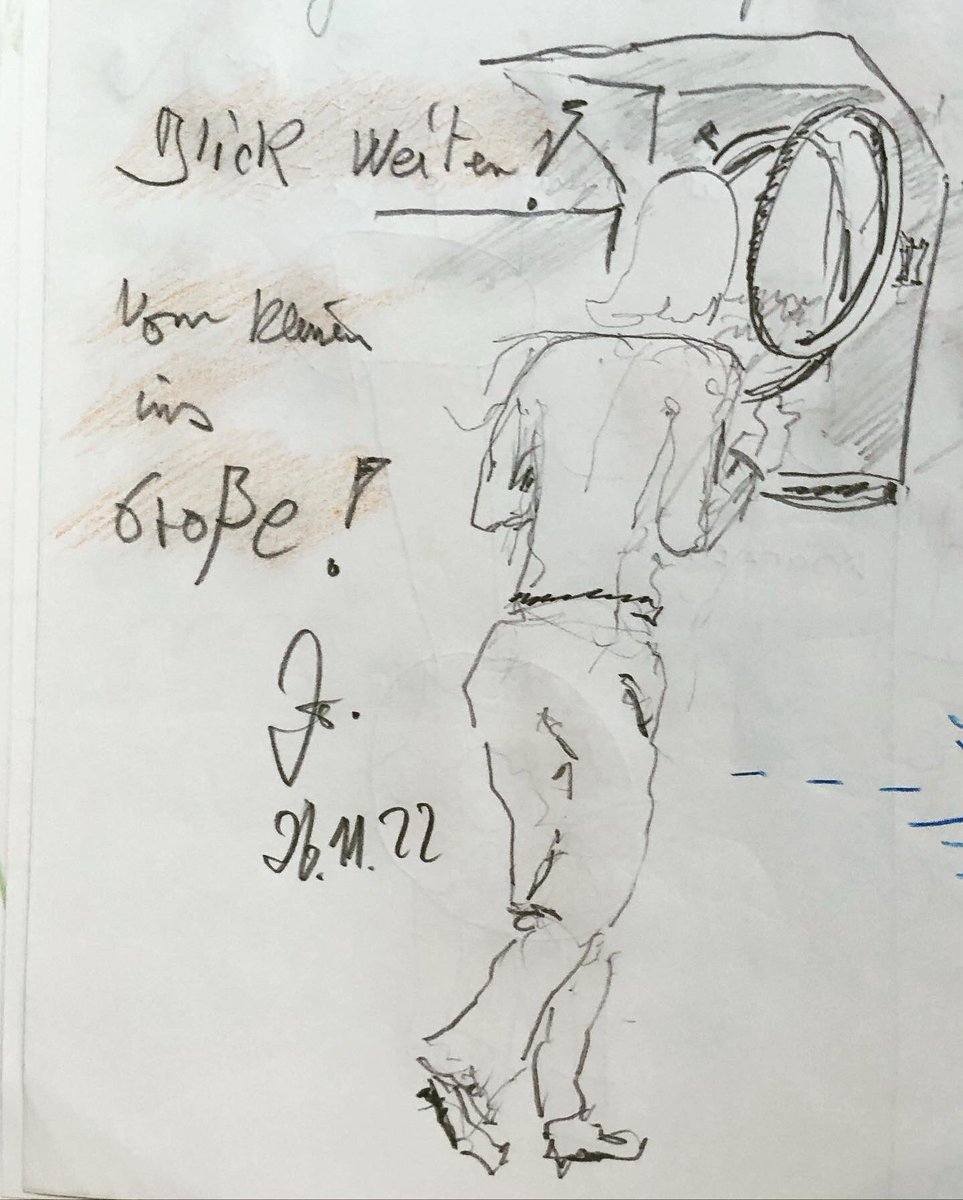 Blick weiten!
Vom kleinen
ins
Große!
26.11.22